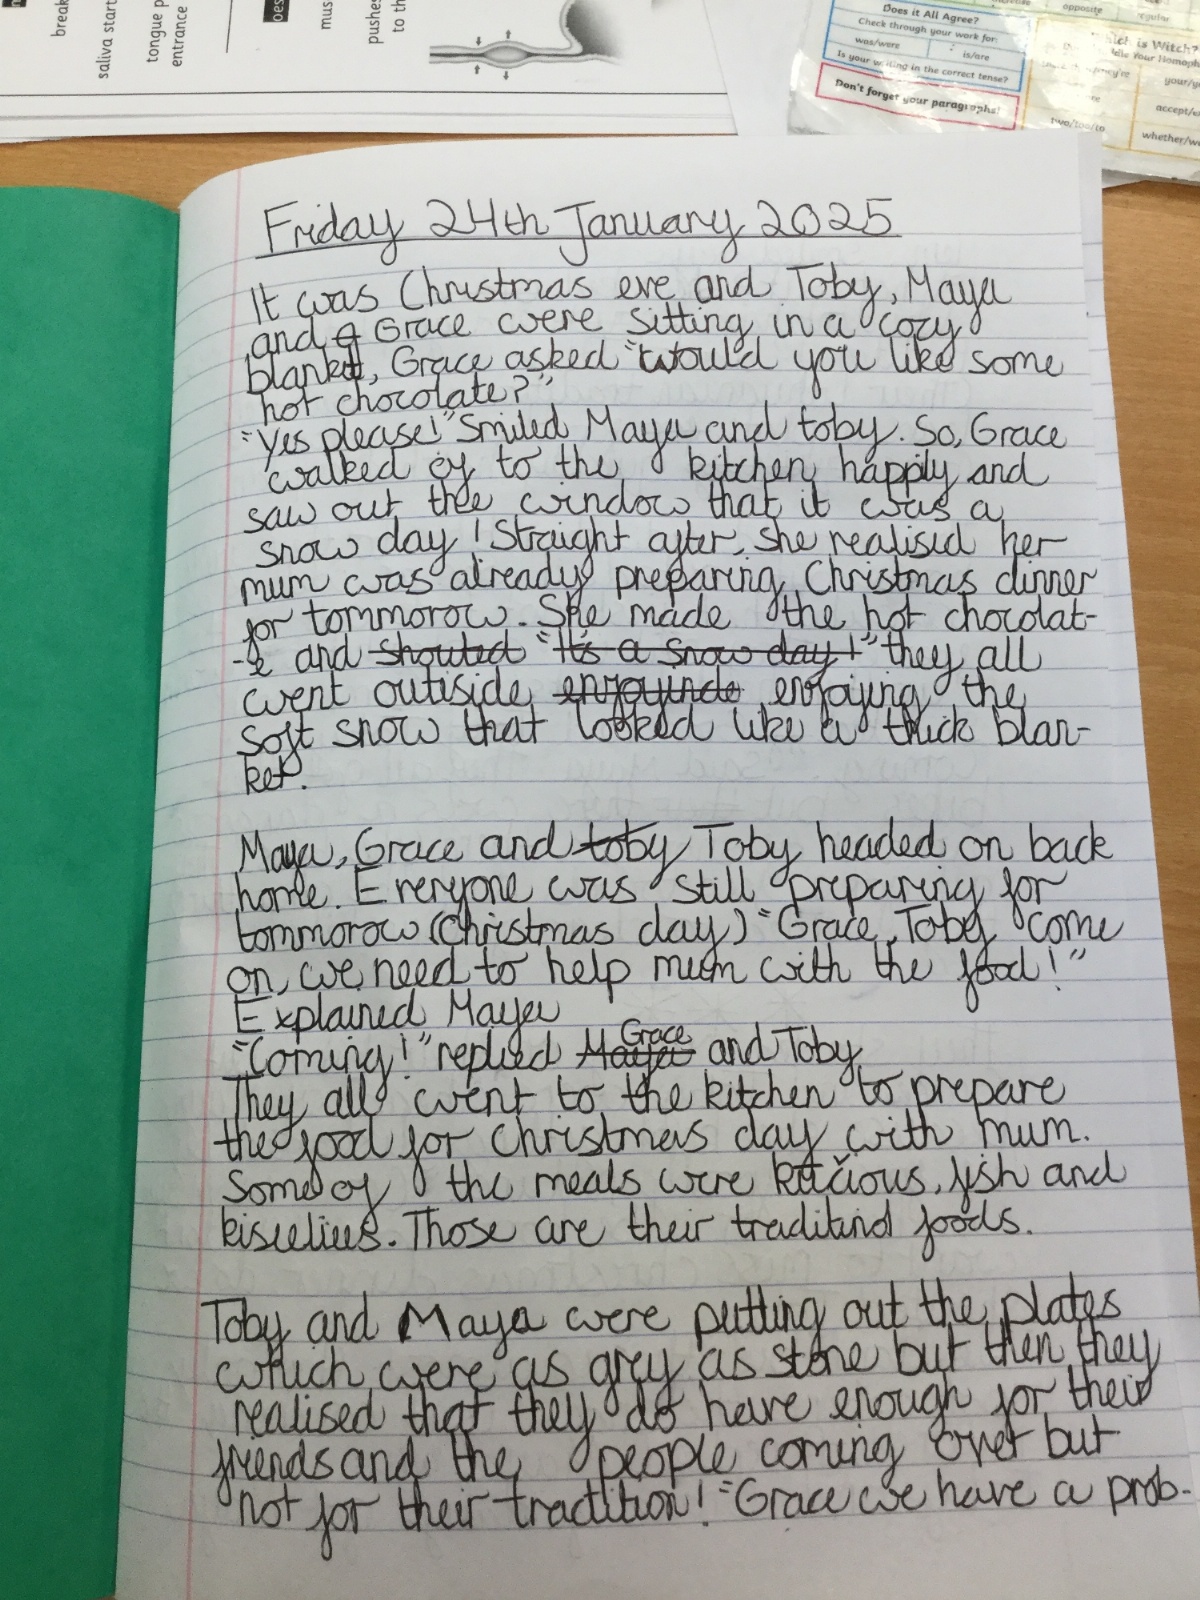 break
saliva start
tongue p
entrance
oes
mus
pushes
to th
opposite
regular
Does it All Agree?
Check through your work for:
was/were
is/are
Is your writing in the correct tense?
Don't forget your paragraphs!
hich is Witch?
Your Homoph
your/y
accept/
two/too/to
whether/we
Friday 24th January 2025
It was Christmas eve and Toby, Maya
and G Grace were sitting in a cozy
blanket, Grace asked "would you like some
hot chocolate?"
"Yes please!" Smiled Maya and toby. So, Grace
walked of to the kitchen happily and
saw out thee window that it was a
snow day! Straight after, she realised her
mum was already preparing Christmas dinner
for tommorow. She made the hot chocolat-
-e and shouted "It's a snow day!" they all
went outiside enjoying the
soft snow that looked like a thick blan-
ket.
Maya, Grace and toby Toby headed on back
home. Everyone was still preparing for
tommorow (Christmas day) "Grace, Toby come
on, we need to help mum with the food!"
Explained Maya
"Coming!" replied Maya Grace and Toby
They all went to the kitchen to prepare
the food for Christmas day with mum.
Some of the meals were fish and
Those are their traditind foods.
Toby and Maya were putting out the plates
which were as grey as stone but then they
realised that they do have enough for their
friends and the people coming over but
not for their tradition! "Grace we have a prob-